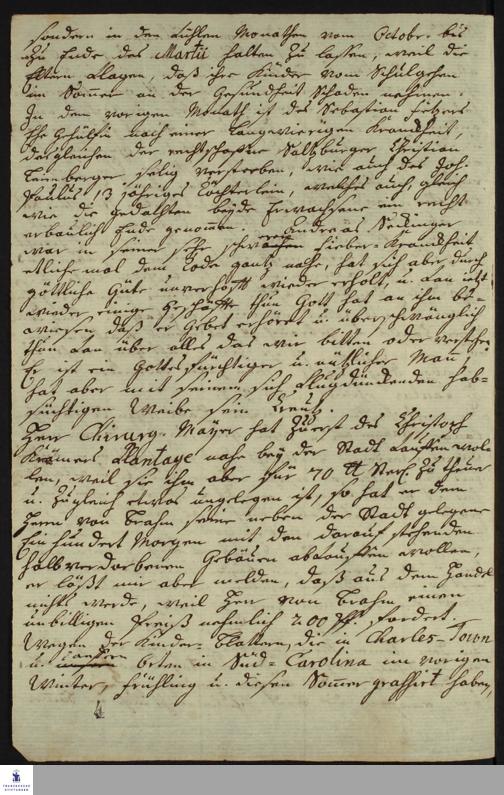 sondern in den kühlen Monathen vom Octobr. bis
zu Ende des Martii halten zu lassen, weil die
Eltern klagen, daß ihre Kinder vom Schulgehen
im Som̄er an der Gesundheit Schaden nehmen.
In dem vorigen Monath ist des Sebastian
Ehe Gehülfin nach einer langwierigen Krankheit,
desgleichen der rechtschaffene Saltzburger Christian
selig verstorben, wie auch des Joh.
Paulus 13 jähriges Töchterlein, welches auch, gleich
wie die gedachten beyde Erwachsene ein recht
erbaulich Ende genom̄en. Andreas
war in seiner sehr schweren Fieber-Krankheit
etliche mal dem Tode gantz nahe, hat sich aber durch
göttliche Güte unverhofft wieder erholt, u. kan jetzt
wieder einige Geschäffte thun. Gott hat an ihm be-
wiesen daß er Gebet erhöret u. überschwänglich
thun kan über alles das wir bitten oder verstehen.
Er ist ein Gottesfürchtiger u. nützlicher Mann,
hat aber mit seinem sich klugdünckenden hab-
süchtigen Weibe sein Creutz.
Herr Chirurg. Mayer hat zuerst des Christoph
Krämers Plantage nahe bey der Stadt kauffen wol-
len, weil sie ihm aber für 70 ℔ Sterl. zu theuer
u. zugleich etwas ungelegen ist, so hat er dem
Herrn von Brahm seine neben der Stadt gelegene
Ein hundert Morgen mit den darauf stehenden
halbverdorbenen Gebäuen abkauffen wollen,
er läßt mir aber melden, daß aus dem Handel
nichts werde, weil Herr von Brahm einen
unbilligen Preiß nehmlich 200 fordert.
Wegen der Kinder-Blattern, die in Charles-Town
u. andern Orten in Süd-Carolina im vorigen
Winter, Frühling u. diesen Som̄er grassirt haben,
FRANCKESCHE
STIFTUNGEN